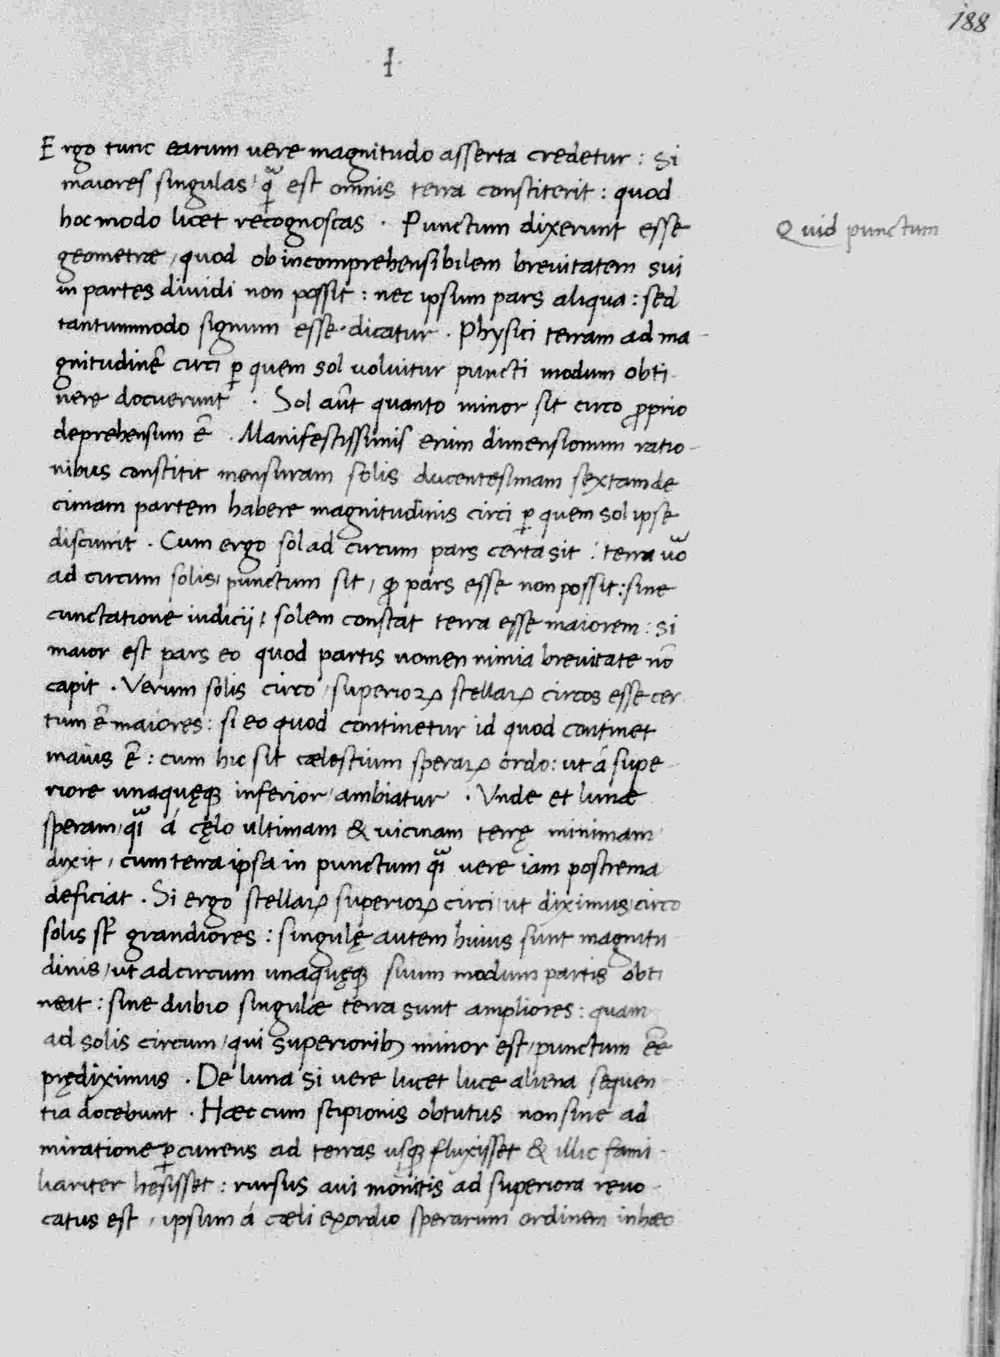 188
I
Ergo tunc earum vere magnitudo asserta credetur : si
maiores singulas / q̃ est omnis terra constiterit : quod
hoc modo licet recognoscas . Punctum dixerunt esse
Quid punctum
geometræ / quod ob incomprehensibilem brevitatem sui
in partes dividi non possit : nec ipsum pars aliqua : sed
tantummodo signum esse dicatur . Physici terram ad ma-
gnitudinẽ circi ꝑ quem sol volvitur puncti modum obti-
nere docuerunt . Sol aũt quanto minor sit circo ꝓprio
deprehensum ẽ . Manifestissimis enim dimensionum ratio-
nibus constitit mensuram solis ducentesimam sextamde
cimam partem habere magnitudinis circi ꝑ quem sol ipse
discurrit . Cum ergo sol ad circum pars certa sit : terra ṽo
ad circum solis / punctum sit / ꝙ pars esse non possit : sine
cunctatione iudicii : solem constat terra esse maiorem : si
maior est pars eo quod partis nomen nimia brevitate nõ
capit . Verum solis circo / superioꝝ stellaꝝ circos esse cer
tum ẽ maiores : si eo quod continetur id quod continet
maius ẽ : cum hic sit cælestium speraꝝ ordo : ut á supe-
riore unaquęqꝫ inferior / ambiatur . Unde et lunæ
speram / q̃i á cęlo ultimam & vicinam terrę minimam
dixit / cum terra ipsa in punctum q̃i vere iam postrema
deficiat . Si ergo stellaꝝ superioꝝ circi / ut diximus / circo
solis st̃ grandiores : singulę autem huius sunt magnitu
dinis / ut ad circum unaquęqꝫ suum modum partis obti
neat : sine dubio singulæ terra sunt ampliores : quam
ad solis circum / qui superioribꝫ minor est / punctum ẽe
prędiximus . De luna si vere lucet luce aliena sequen-
tia docebunt . Hæc cum scipionis obtutus non sine ad
miratione ꝑcurrens ad terras usqꝫ fluxisset & illic fami-
liariter hęsisset : rursus avi monitis ad superiora revo-
catus est / ipsum á cæli exordio sperarum ordinem in hæc